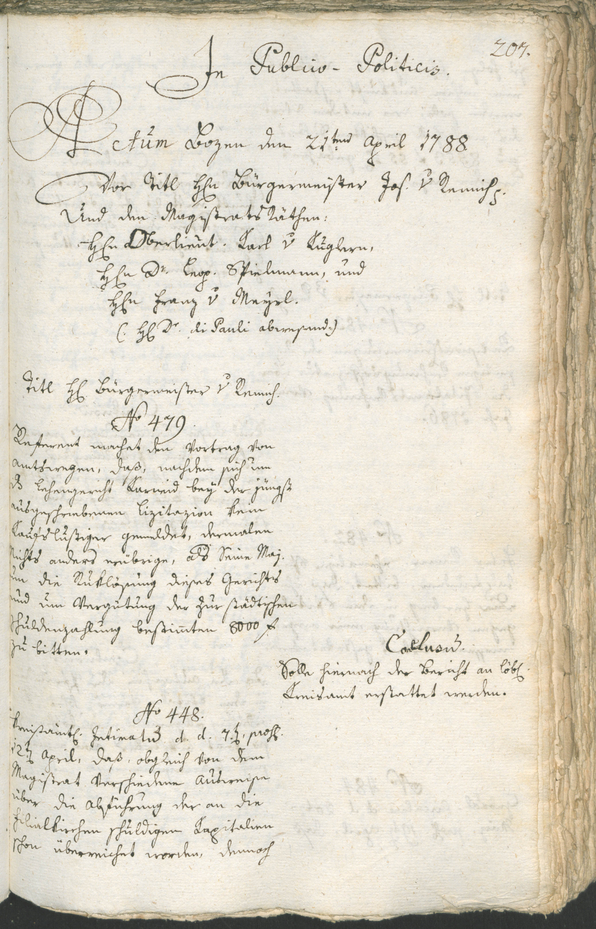 207.
In Publico-Politicis.
Actum Bozen den 21ten April 1788
Vor Titl Hrn Bürgermeister Jos. v Remich
Und den Magistrats Räthen:
Hrn Oberlieut. Carl v Kuglern,
Hrn Dr. Leop. Spielmann, und
Hrn Franz v Mayrl.
(: H Dr. di Pauli abwesend:)
Titl H Bürgermeister v Remich.
No 479.
Referent machet den Vortrag von
Amtswegen, daß, nachdem sich um
d Lehengericht Karneid bey der jüngst
ausgeschriebenen Lizitazion kein
Kaufslustiger gemeldet, dermalen
nichts anders erübrige, als Seine Maj.
um die Rüklösung dieses Gerichts
und um Vergütung der zur städtischen
Schuldenzahlung bestimten 8000 f
zu bitten.
Conclusum.
Solle hiernach der Bericht an löbl.
Kreisamt erstattet werden.
No 448.
Kreisämtl. Intimatum d. d. 7t, prs.
12t April, daß, obgleich von dem
Magistrat verschiedene Ausweise
über die Abführung der an die
Filialkirchen schuldigen Kapitalien
schon überreichet worden, dennoch